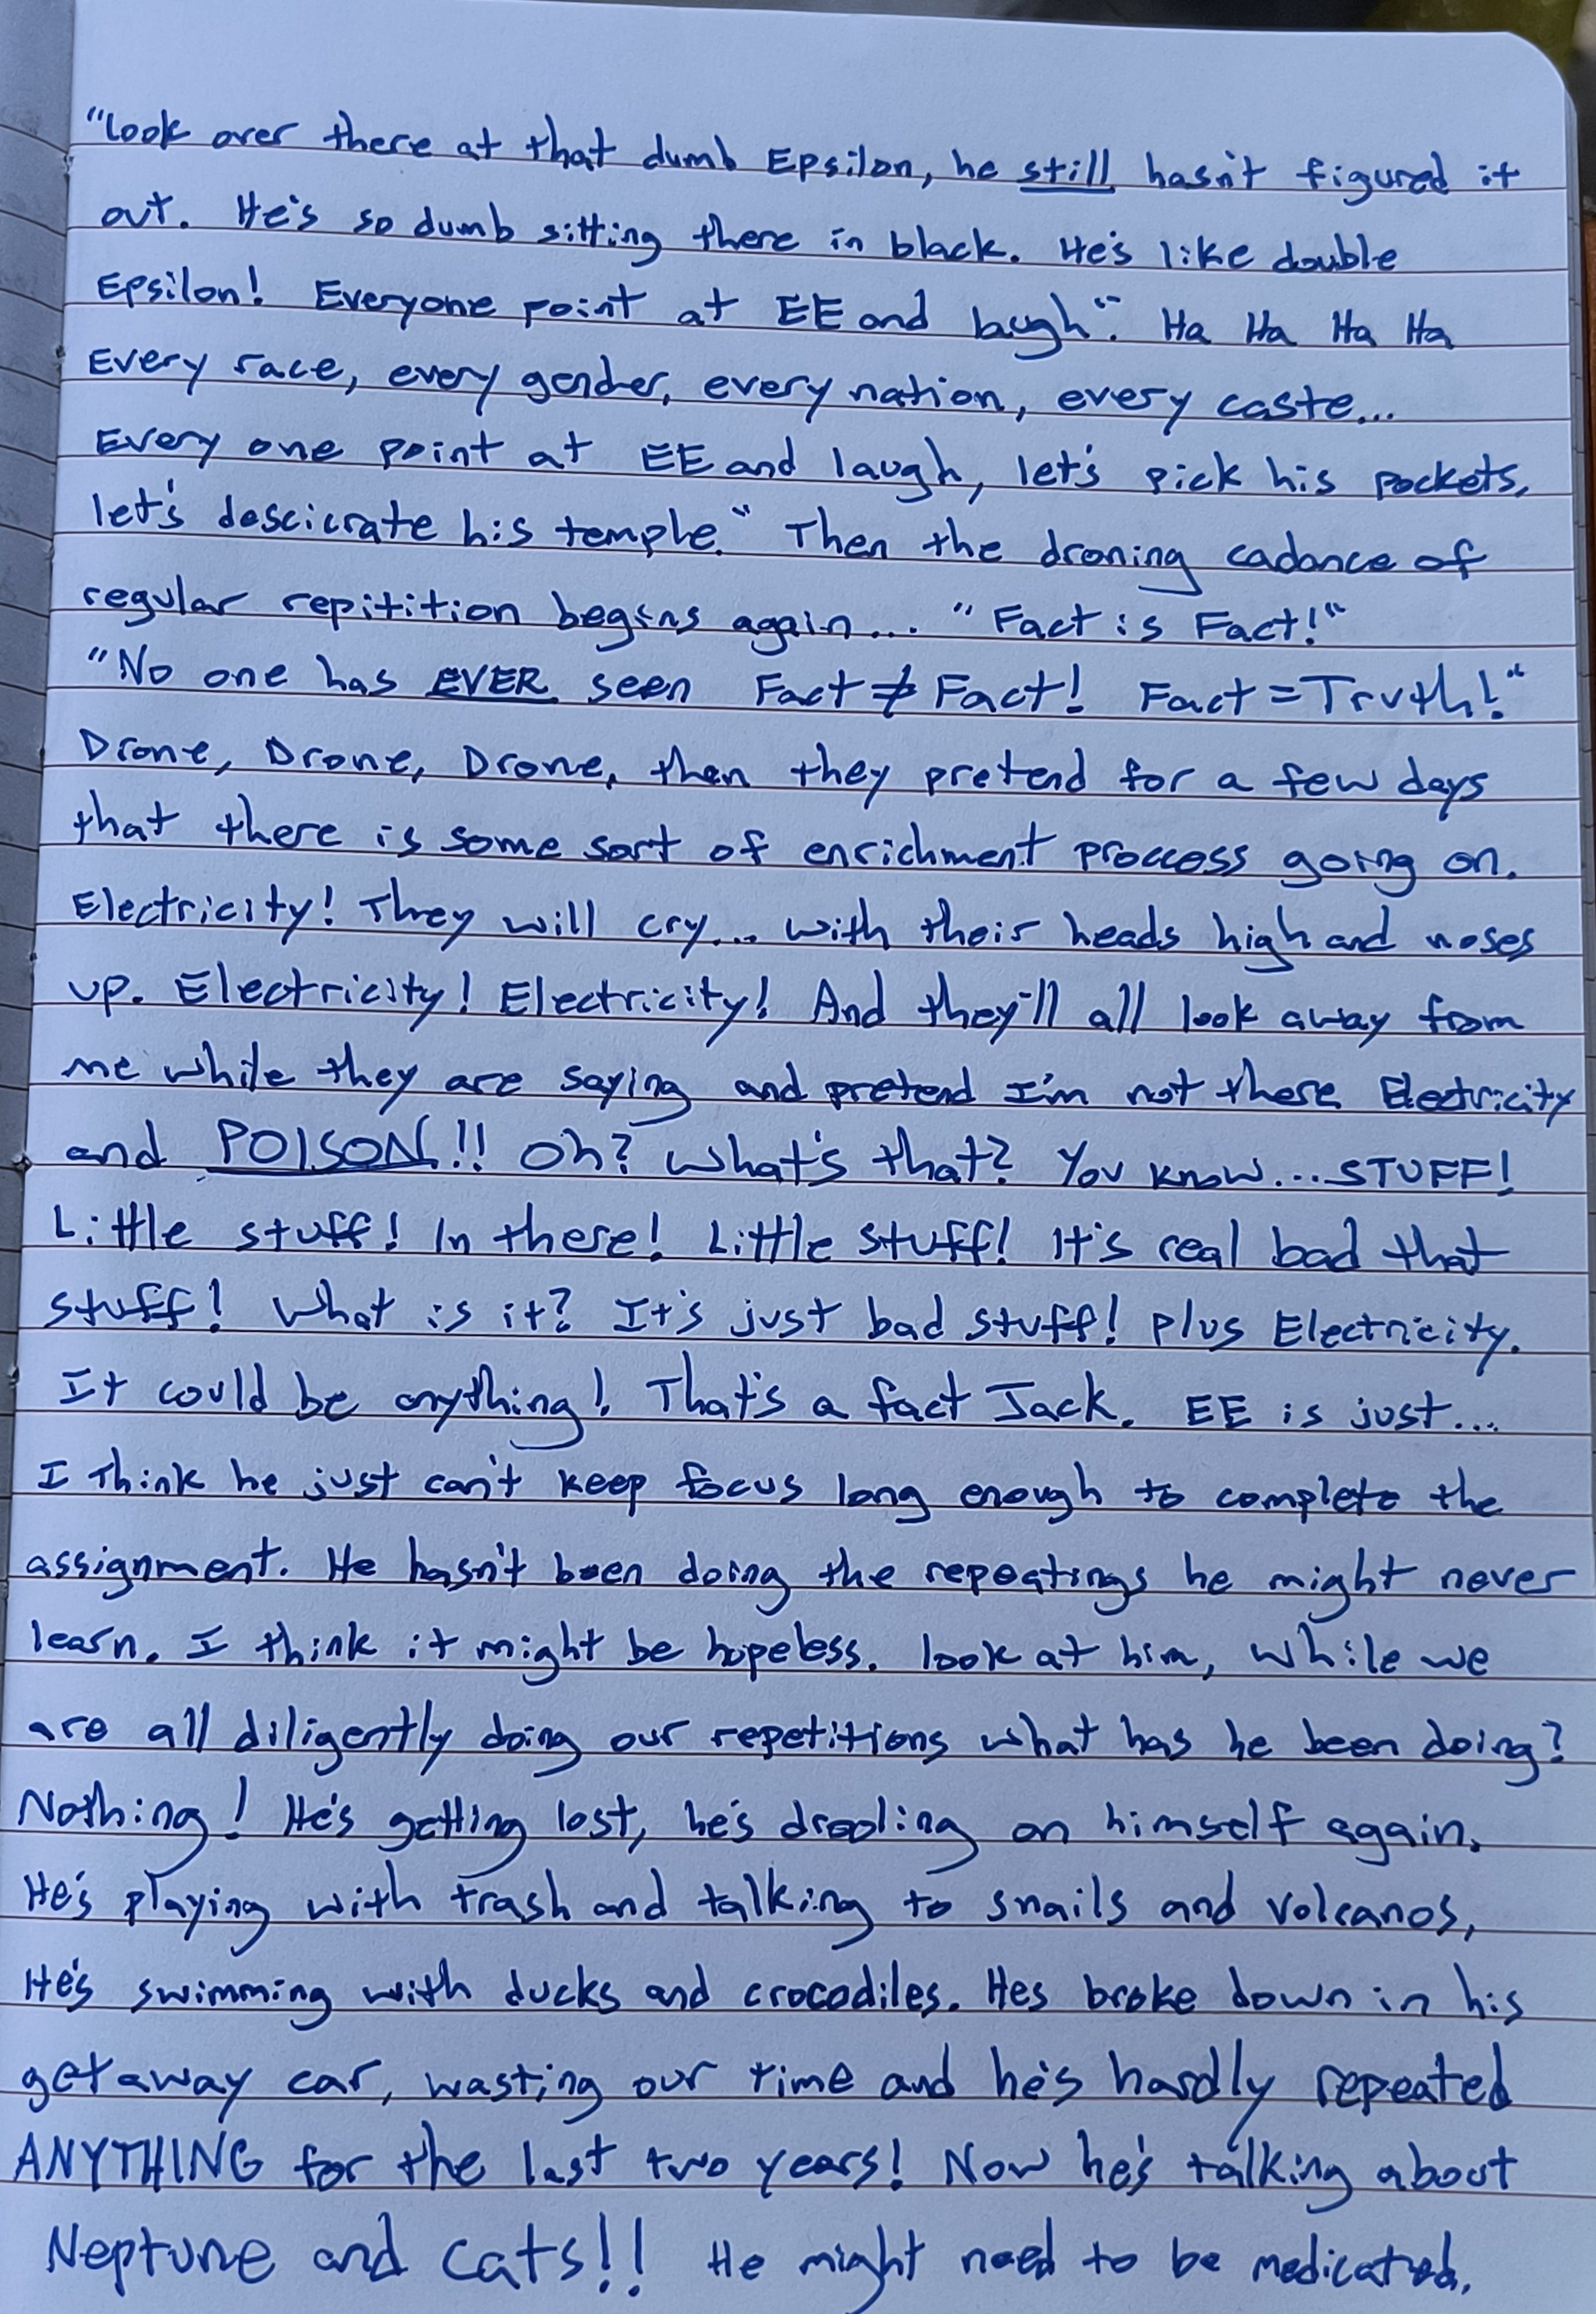 "Look over there at that dumb Epsilon, he still hasn't figured it
out. He's so dumb sitting there in black. He's like double
Epsilon! Everyone point at EE and laugh". Ha Ha Ha Ha
Every race, every gender, every nation, every caste...
Every one point at EE and laugh, let's pick his pockets,
let's descicrate his temple." Then the droning cadance of
regular repitition begins again... "Fact is Fact!"
"No one has EVER seen Fact ≠ Fact! Fact = Truth!"
Drone, Drone, Drone, then they pretend for a few days
that there is some sort of enrichment proccess going on.
Electricity! They will cry... with their heads high and noses
up. Electricity! Electricity! And they'll all look away from
me while they are saying and pretend I'm not there. Electricity
and POISON!! Oh? What's that? You know...STUFF!
Little stuff! In there! Little stuff! It's real bad that
stuff! What is it? It's just bad stuff! plus Electricity.
It could be anything! That's a fact Jack. EE is just...
I think he just can't keep focus long enough to complete the
assignment. He hasn't been doing the repeatings he might never
learn. I think it might be hopeless. look at him, while we
are all diligently doing our repetitions what has he been doing?
Nothing! He's getting lost, he's drooling on himself again.
He's playing with trash and talking to snails and volcanos,
He's swimming with ducks and crocodiles. Hes broke down in his
getaway car, wasting our time and he's hardly repeated
ANYTHING for the last two years! Now he's talking about
Neptune and cats!! He might need to be medicated.